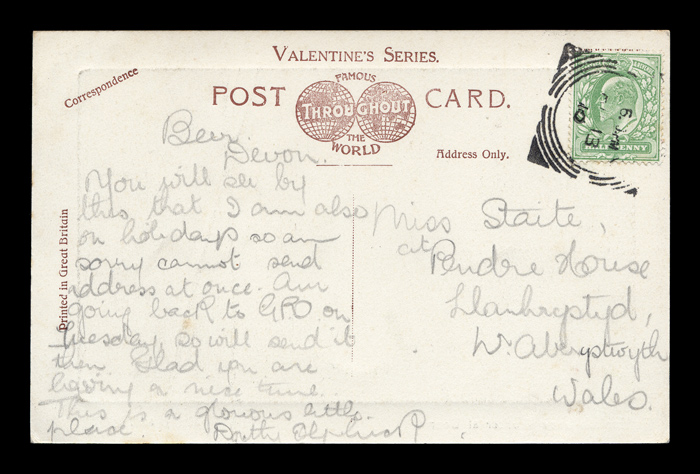 VALENTINE'S SERIES.
Correspondence
POST CARD.
FAMOUS
THROUGHOUT
THE
WORLD
Address Only.
Printed in Great Britain
HALFPENNY
Beer.
Devon.
You will see by
this that I am also
on holidays so am
sorry cannot send
address at once. Am
going back to GPO on
Tuesday so will send it
then. Glad you are
having a nice time.
This is a glorious little
place
Miss Staite,
at Pendre House
Llanhrystyd,
Nr Aberystwyth
Wales.